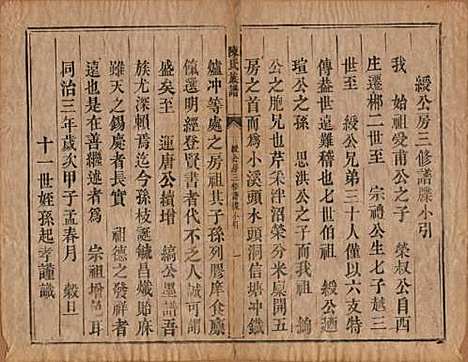 綬公房三修譜牒小引
我 始祖受甫公之子 榮叔公自西
庄遷郴二世公 宗禮公生七子越三
世至 綬公兄弟三十人僅以六支特
傳蓋世遠難稽也七世伯祖 綬公迺
瑄公之孫 思洪公之子而我祖 綸
公之胞兄也芹采泮沼榮 開五
房之首而為小溪頭水頭洞信塘冲鐵
陳氏族譜
綬公房三修譜牒小引
爐冲等處之房祖其子孫列膠庠食廩
餼選明經登賢書者代不乏人誠可謂
盛矣至 運唐公 縞公墨譜吾
族尤深賴焉迄今孫枝誕毓昌熾
雖天之錫處者長實 祖德之發祥者
遠也是在善繼述者為 宗祖增 耳
同治三年歲次甲子孟春月 穀日
十一世姪孫起孝謹識